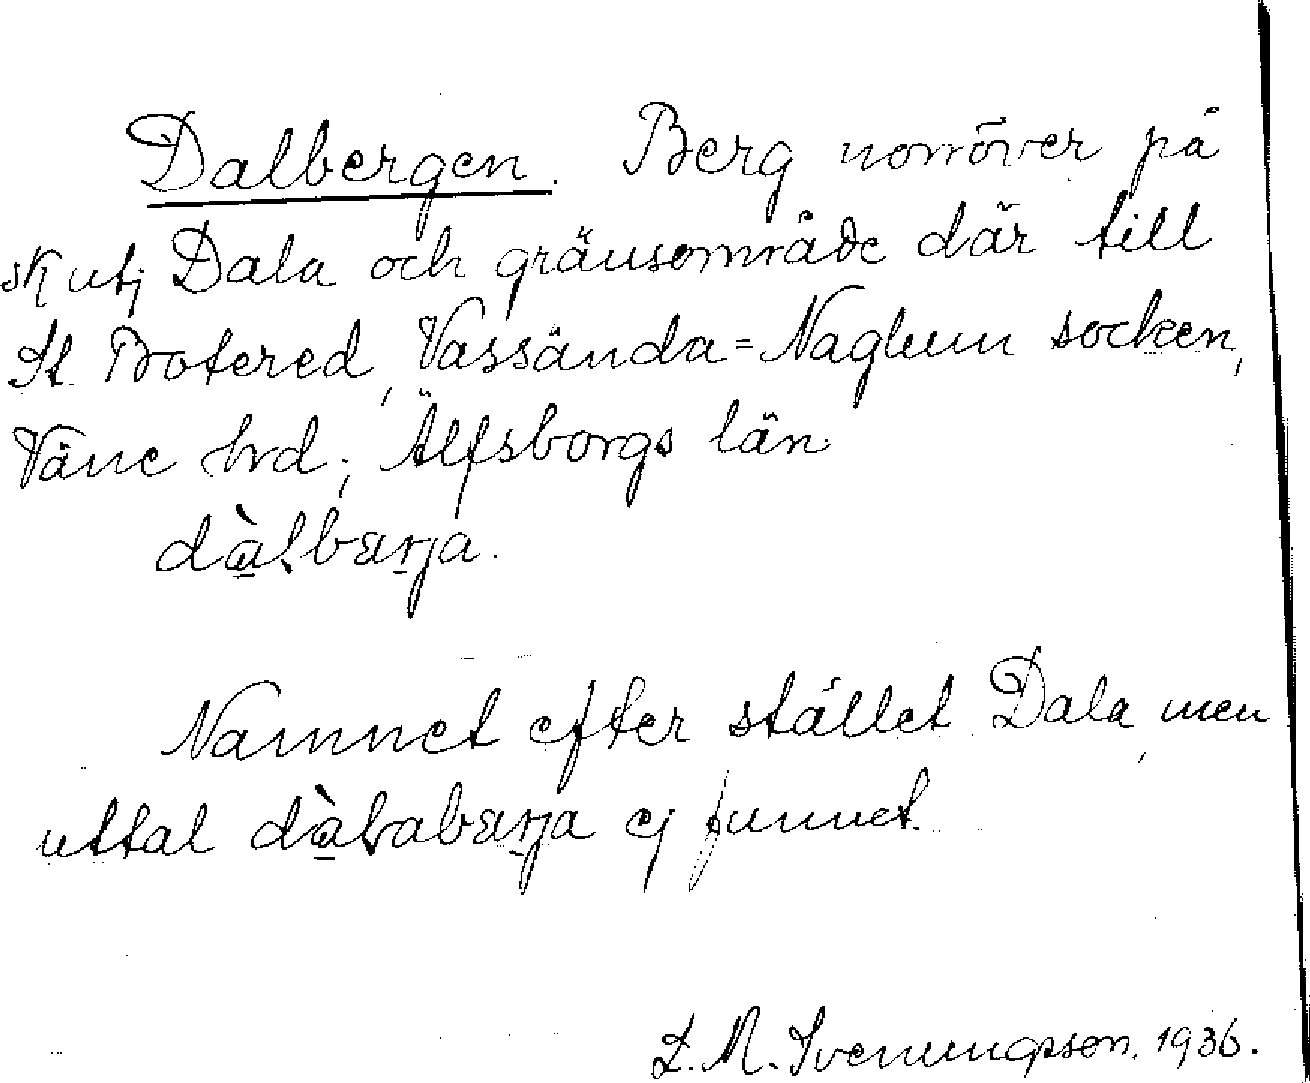 Dalbergen. Berg norröver på
sk utj Dala och gränsområde där till
St Botered, Vassända-Naglum socken,
Väne hrd, Älfsborgs län
dàlbærja.
Namnet efter stället Dala, men
uttal dàlabærja ej funnet.
L. M. Svenungsson. 1936.